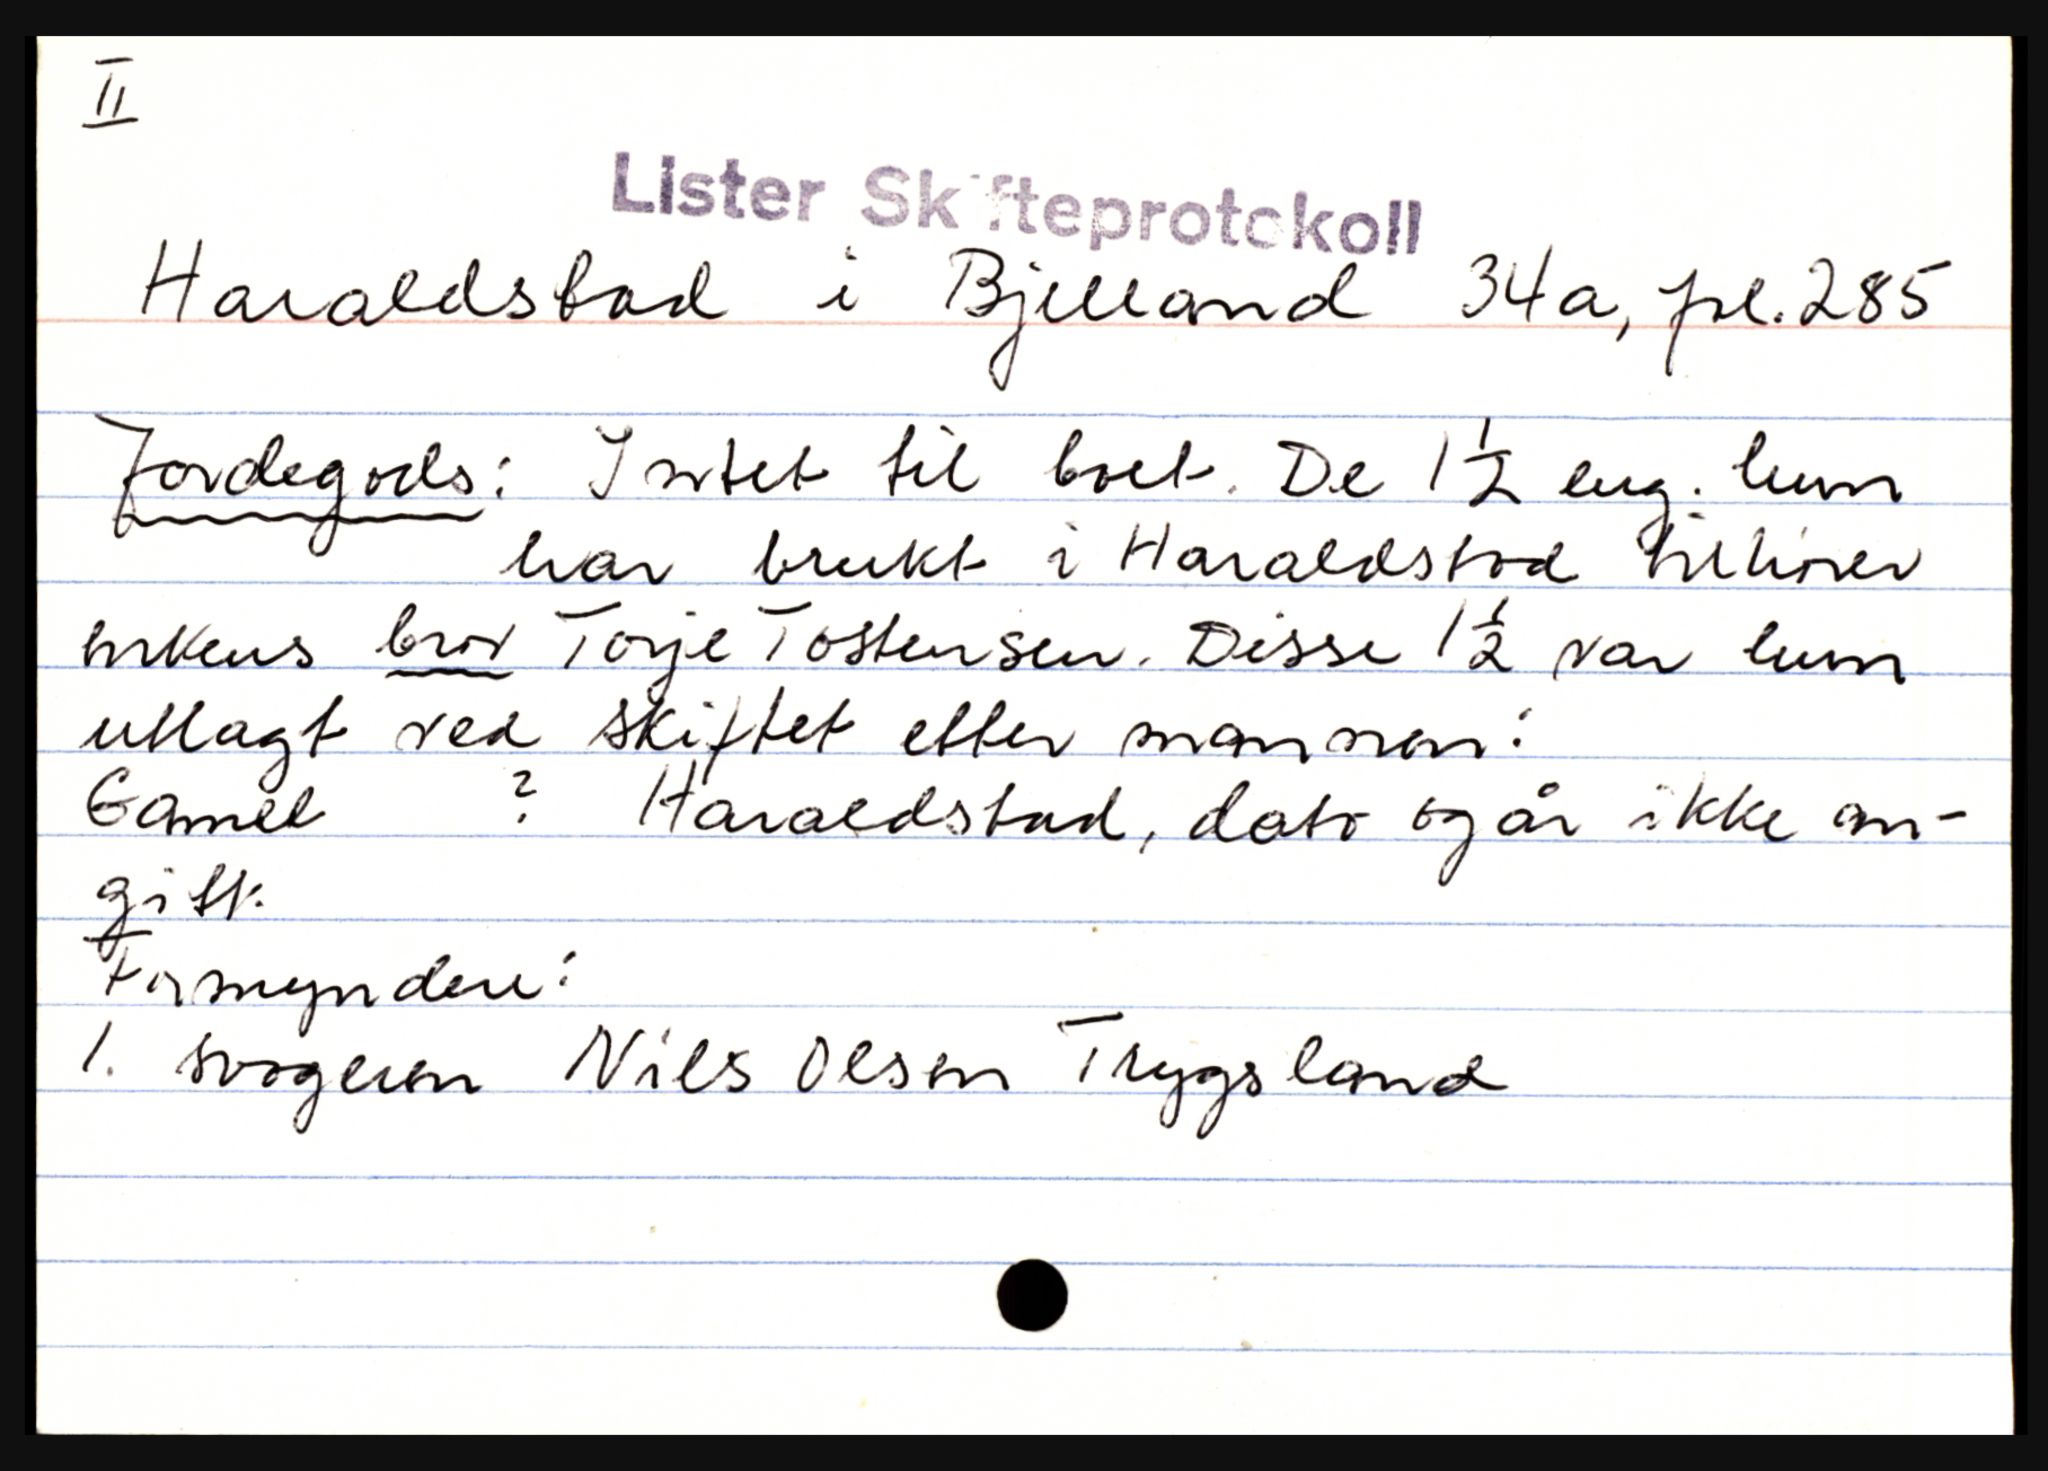 II
Lister Skifteprotokoll
Haraldstad i Bjelland 34a, fol. 285
Jordegods: Intet til boet. De 1 1/2 eng. hun
har brukt i Haraldstad tilhører
enkens bror Torje Tostensen. Disse 1 1/2 var hun
utlagt ved skiftet etter mannen:
Gamel ? Haraldstad, dato og år ikke an-
gitt.
Formyndere:
1. svogeren Nils Olsen Trygsland